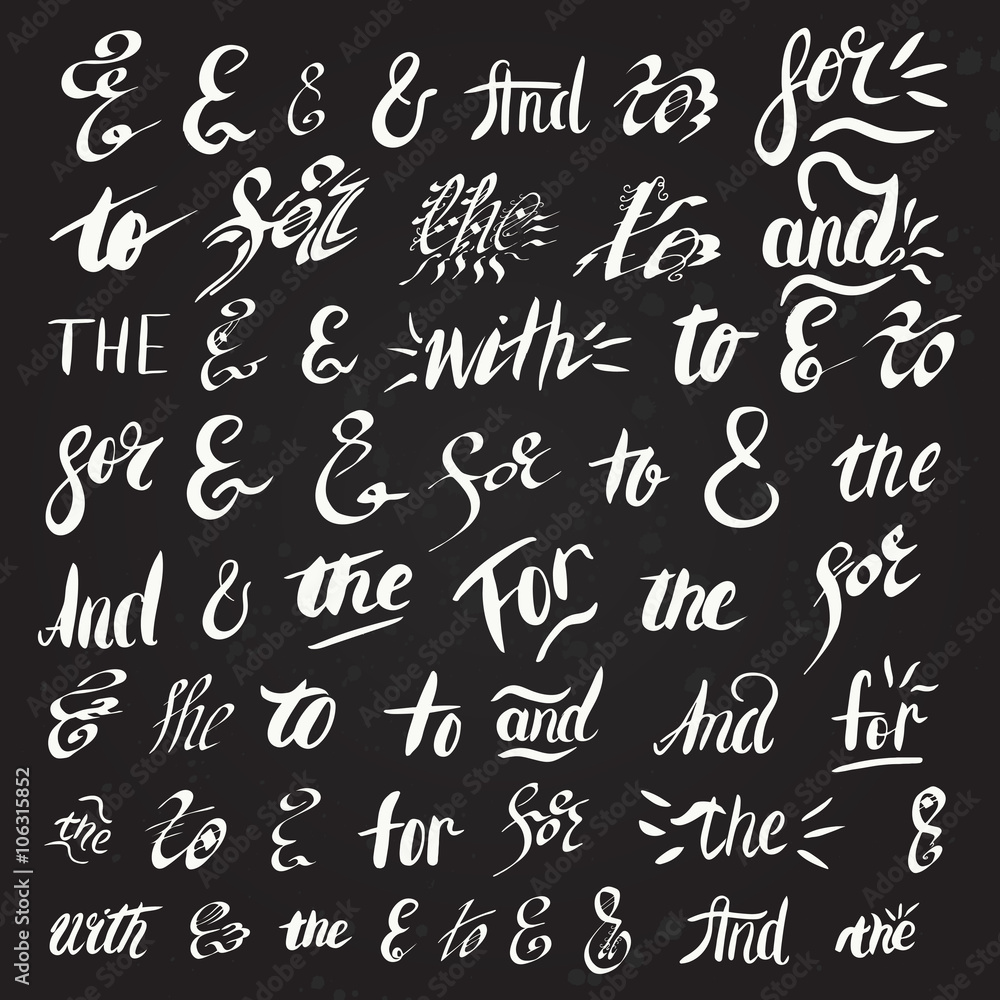 & & & & And to for
to for the to and
THE & & with to & to
for & & for to & the
And & the For the for
& the to to and And for
the to & for for the &
with & the & to & & And the
Adobe Stock | #106315852